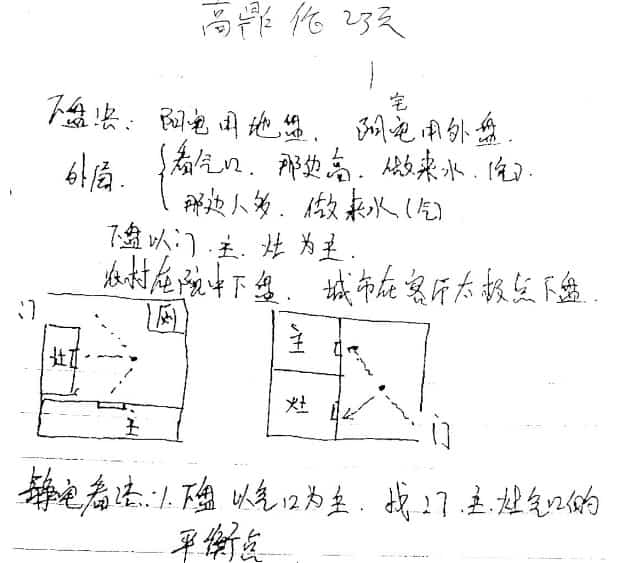 下盘法：阴宅用地盘．阳宅用外盘．
外局．看气口．那边高．做来水．(气)．
那边人多．做来水(气)
下盘以门．主．灶为主．
农村在院中下盘．城市在客厅太极点下盘．
门
厕
灶
主
主
灶
门
静宅看法：1．下盘以气口为主．找门．主．灶气口的
平衡点